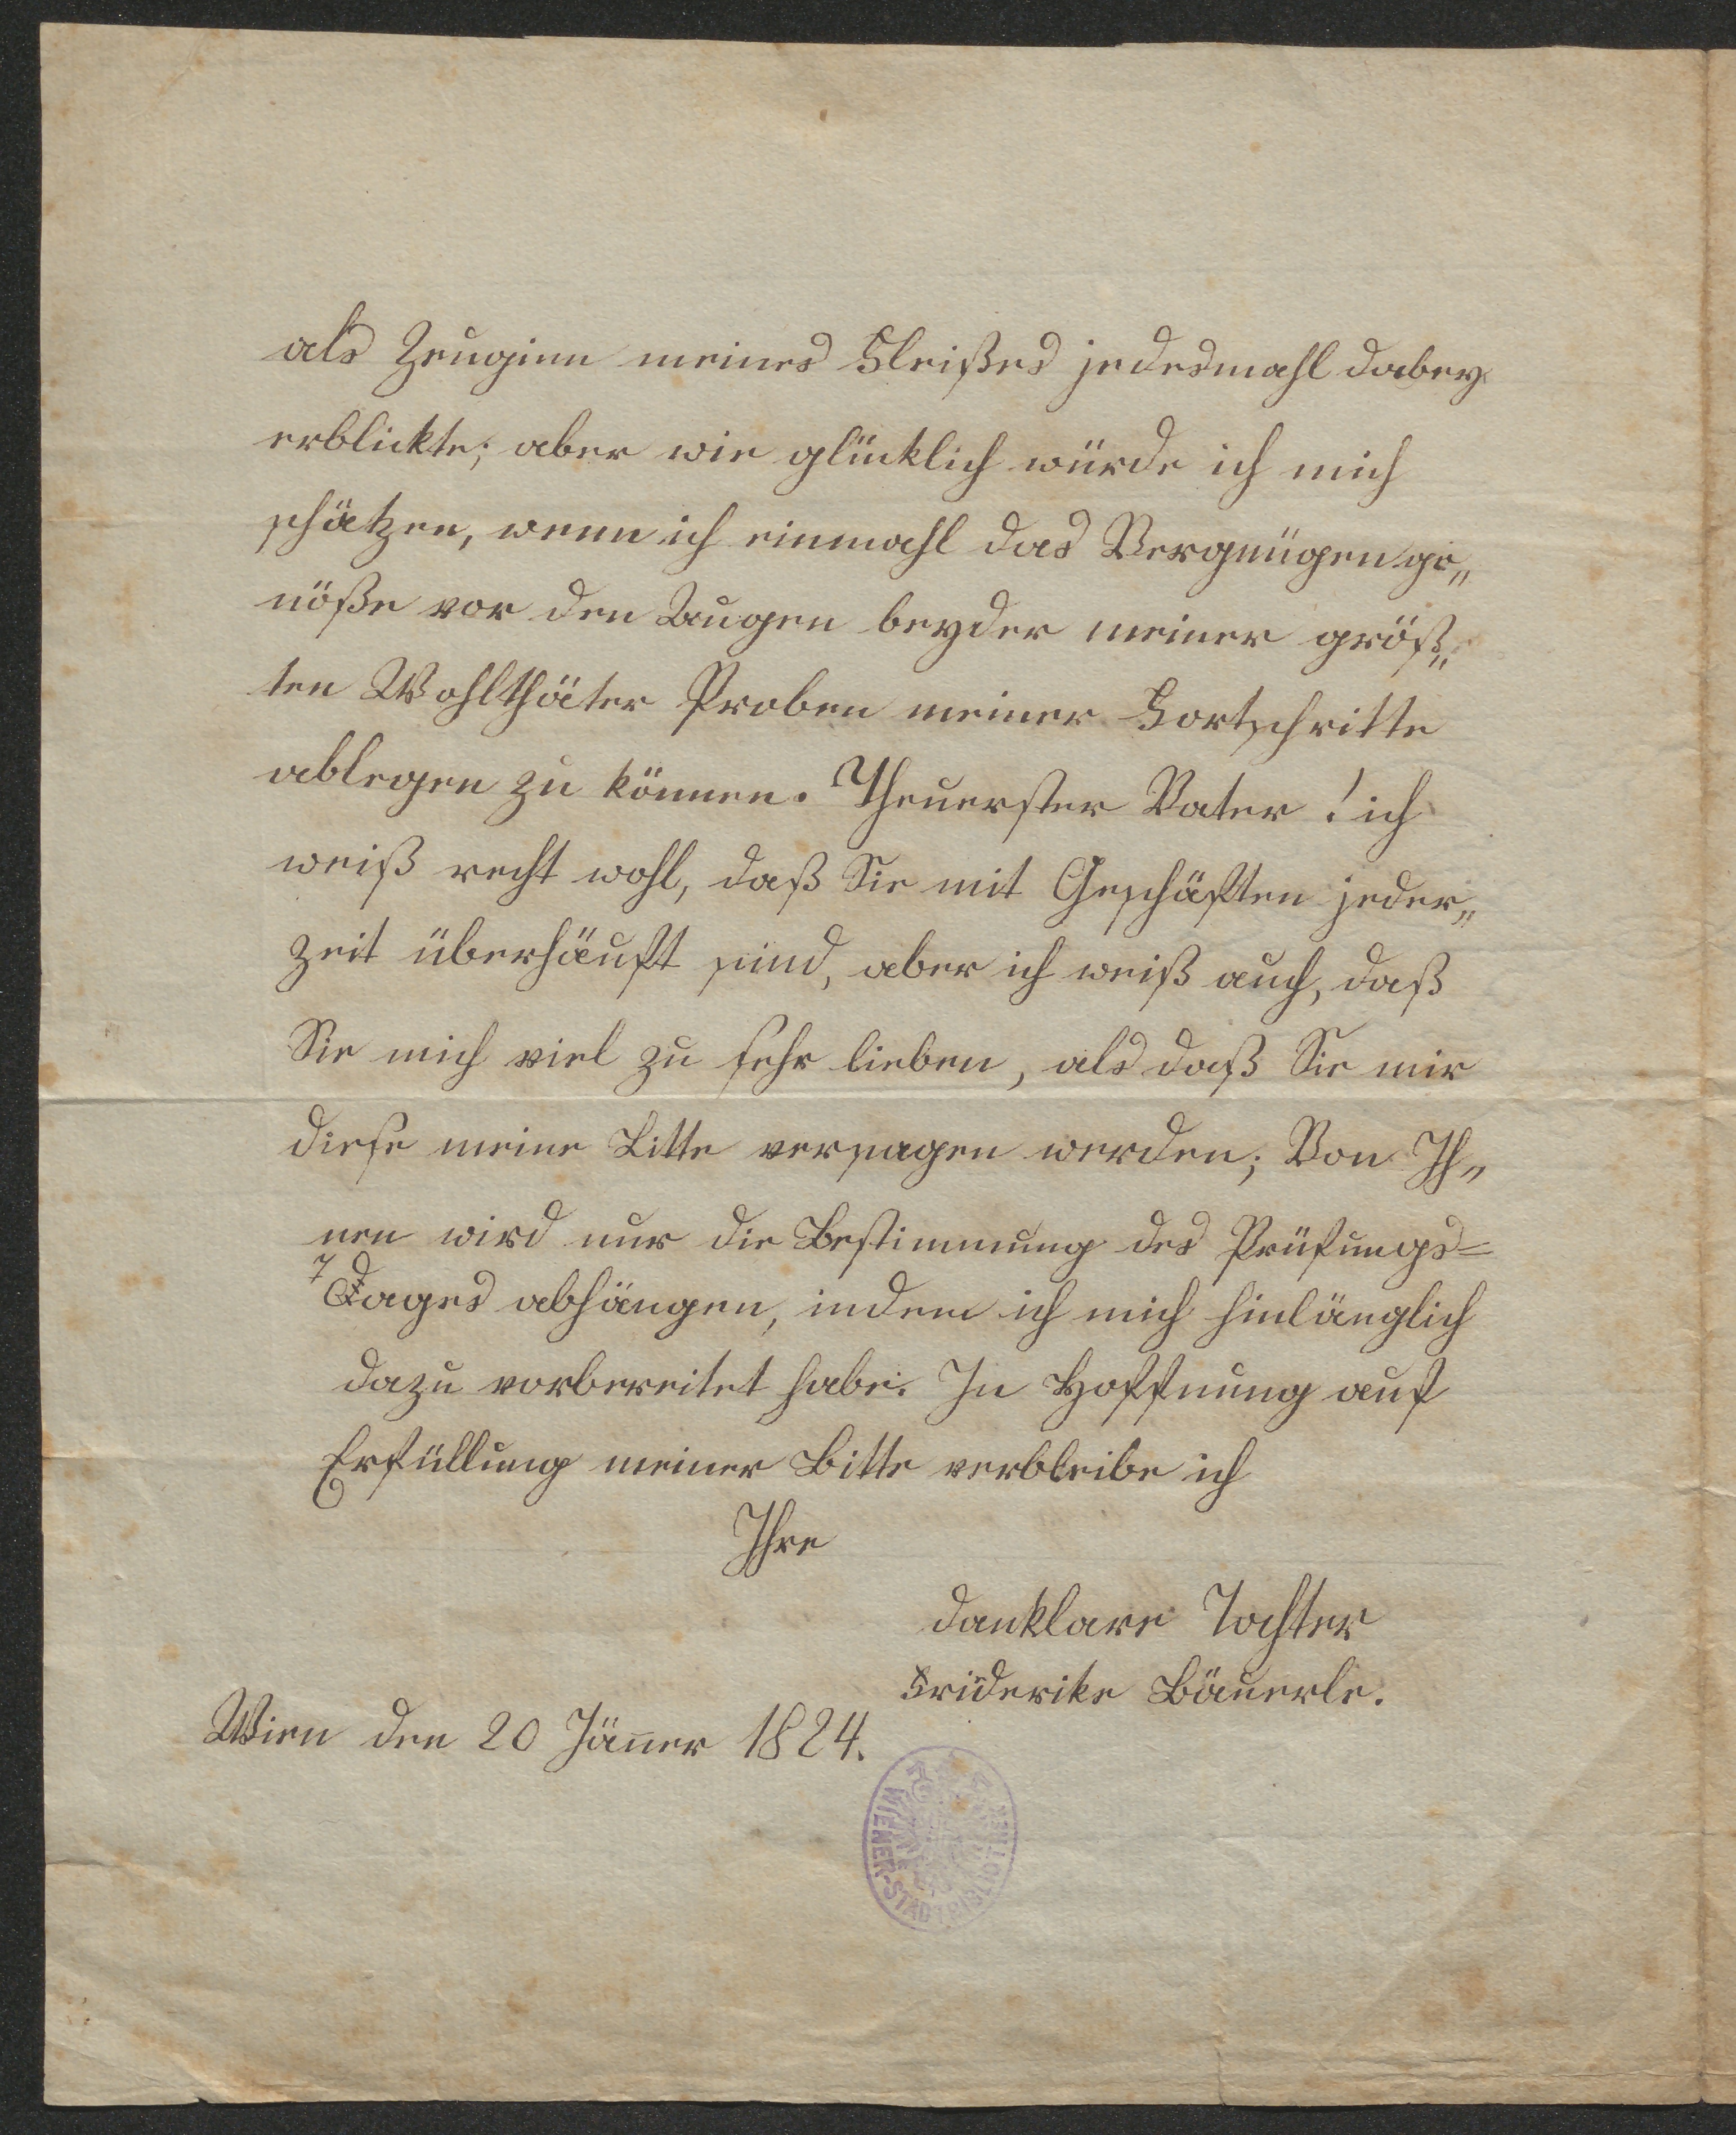 als Zeuginn meines Fleißes jedesmahl dabey
erblickte; aber wie glücklich würde ich mich
schätzen, wenn ich einmahl das Vergnügen ge„
nöße vor den Augen beyder meiner größ„
ten Wohlthäter Proben meiner Fortschritte
ablegen zu können. Theuerster Vater ! ich
weiß recht wohl, daß Sie mit Geschäften jeder„
zeit überhäuft sind, aber ich weiß auch, daß
Sie mich viel zu sehr lieben, als daß Sie mir
diese meine Bitte versagen werden; Von Ih„
nen wird nur die Bestimmung des Prüfungs=
Tages abhängen, indem ich mich hinlänglich
dazu vorbereitet habe. In Hoffnung auf
Erfüllung meiner Bitte verbleibe ich
Ihre
danklare Tochter
Friderike Bäuerle.
Wien den 20 Jäner 1824.
WIENER-STADTBIBLIOTHEK